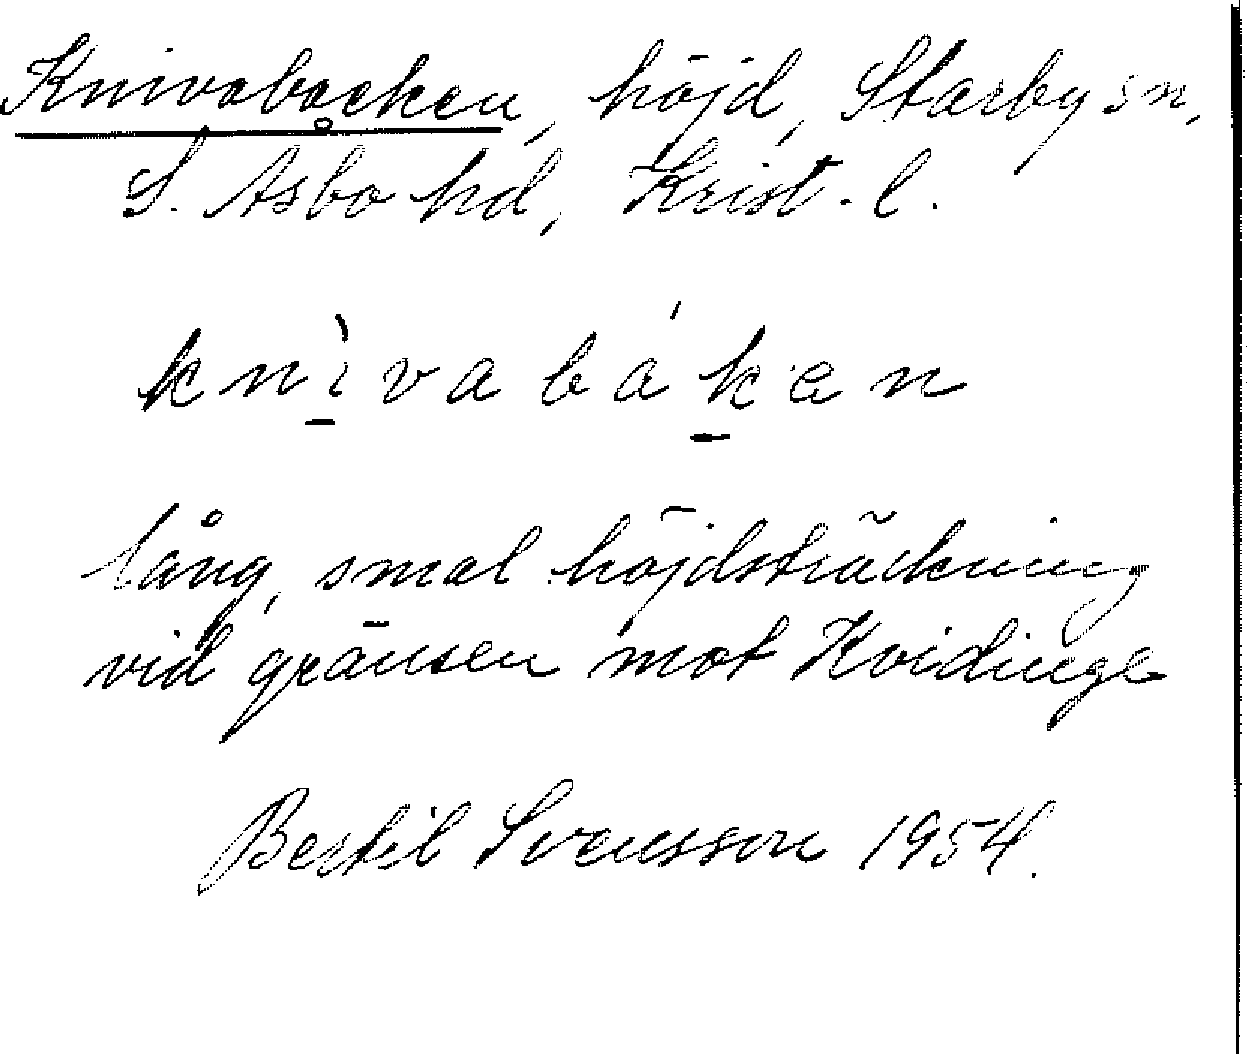 Knivabacken, höjd, Starby sn,
S. Åsbo hd, Krist. l.
knìvabákæn
lång, smal höjdsträckning
vid gränsen mot Kvidinge
Bertil Svensson 1954.